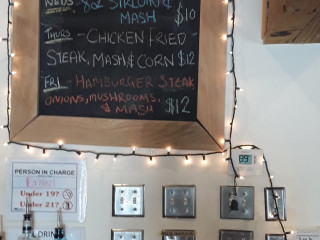 WEDS 8OZ SIRLOIN &
MASH $10
THURS - CHICKEN FRIED -
STEAK, MASH & CORN $12
FRI - HAMBURGER STEAK
ONIONS, MUSHROOMS,
& MASH $12
PERSON IN CHARGE
Under 19?
Under 21?